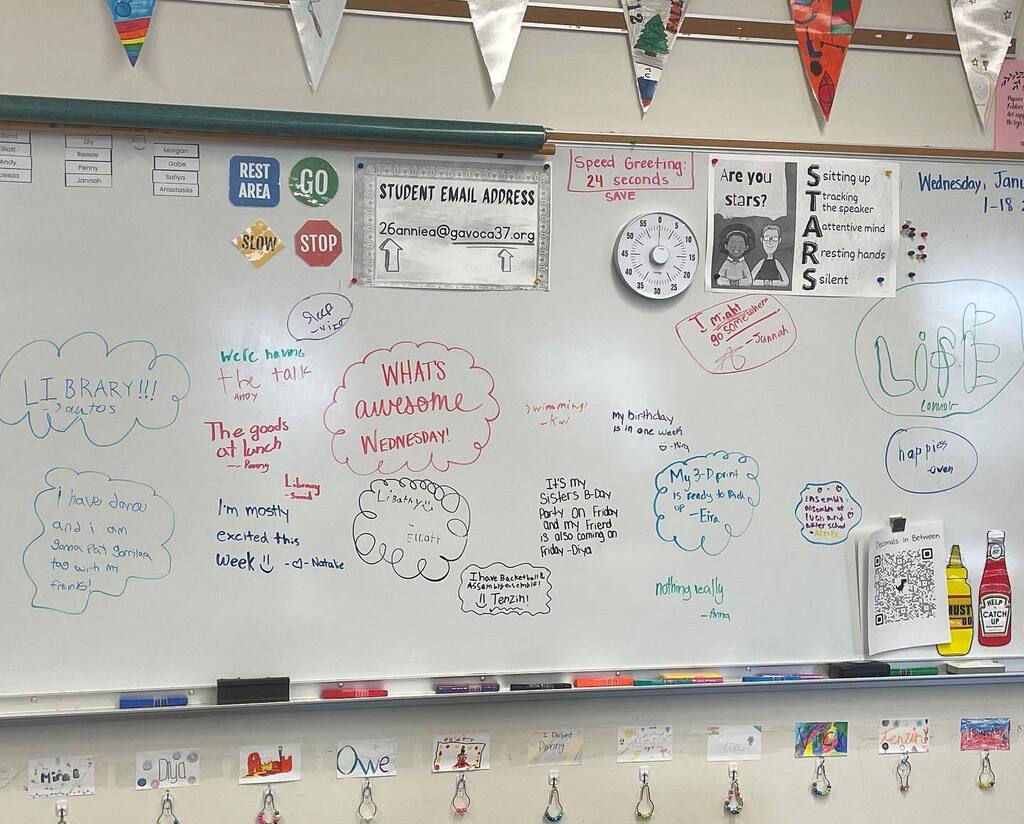 Elliott
Andy
Lily
Reesie
Penny
Jannah
Morgan
Gabe
Safiya
Anastasiia
REST
AREA
GO
SLOW
STOP
STUDENT EMAIL ADDRESS
26anniea@gavoca37.org
Speed Greeting:
24 seconds
SAVE
0
5
10
15
20
25
30
35
40
45
50
55
Are you
stars?
STARS
sitting up
tracking
the speaker
attentive mind
resting hands
silent
Wednesday, Janu
1-18
Sleep
I might
go somewhere
- Jannah
LIBRARY!!!
- Santos
We're having
the talk
ANDY
WHAT'S
awesome
WEDNESDAY!
Swimming!
- Kai
My birthday
is in one week
LifE
Connor
The goods
at lunch
~ Penny
happies
- owen
Library
i have dance
and i am
gonna play gorrilla
tag with my
I'm mostly
excited this
week - Natalie
- Elliott
IT's my
Sisters B-Day
Party On Friday
and my Friend
is also coming on
Friday - Diya
My 3-D print
is ready to Pick
up - Eira
I have Basketball &
Tenzin!
nothing really
- Anna
Decimals In Between
MUST
HELP
CATCH
UP
Mira B
Diya
Owe
Tenzin